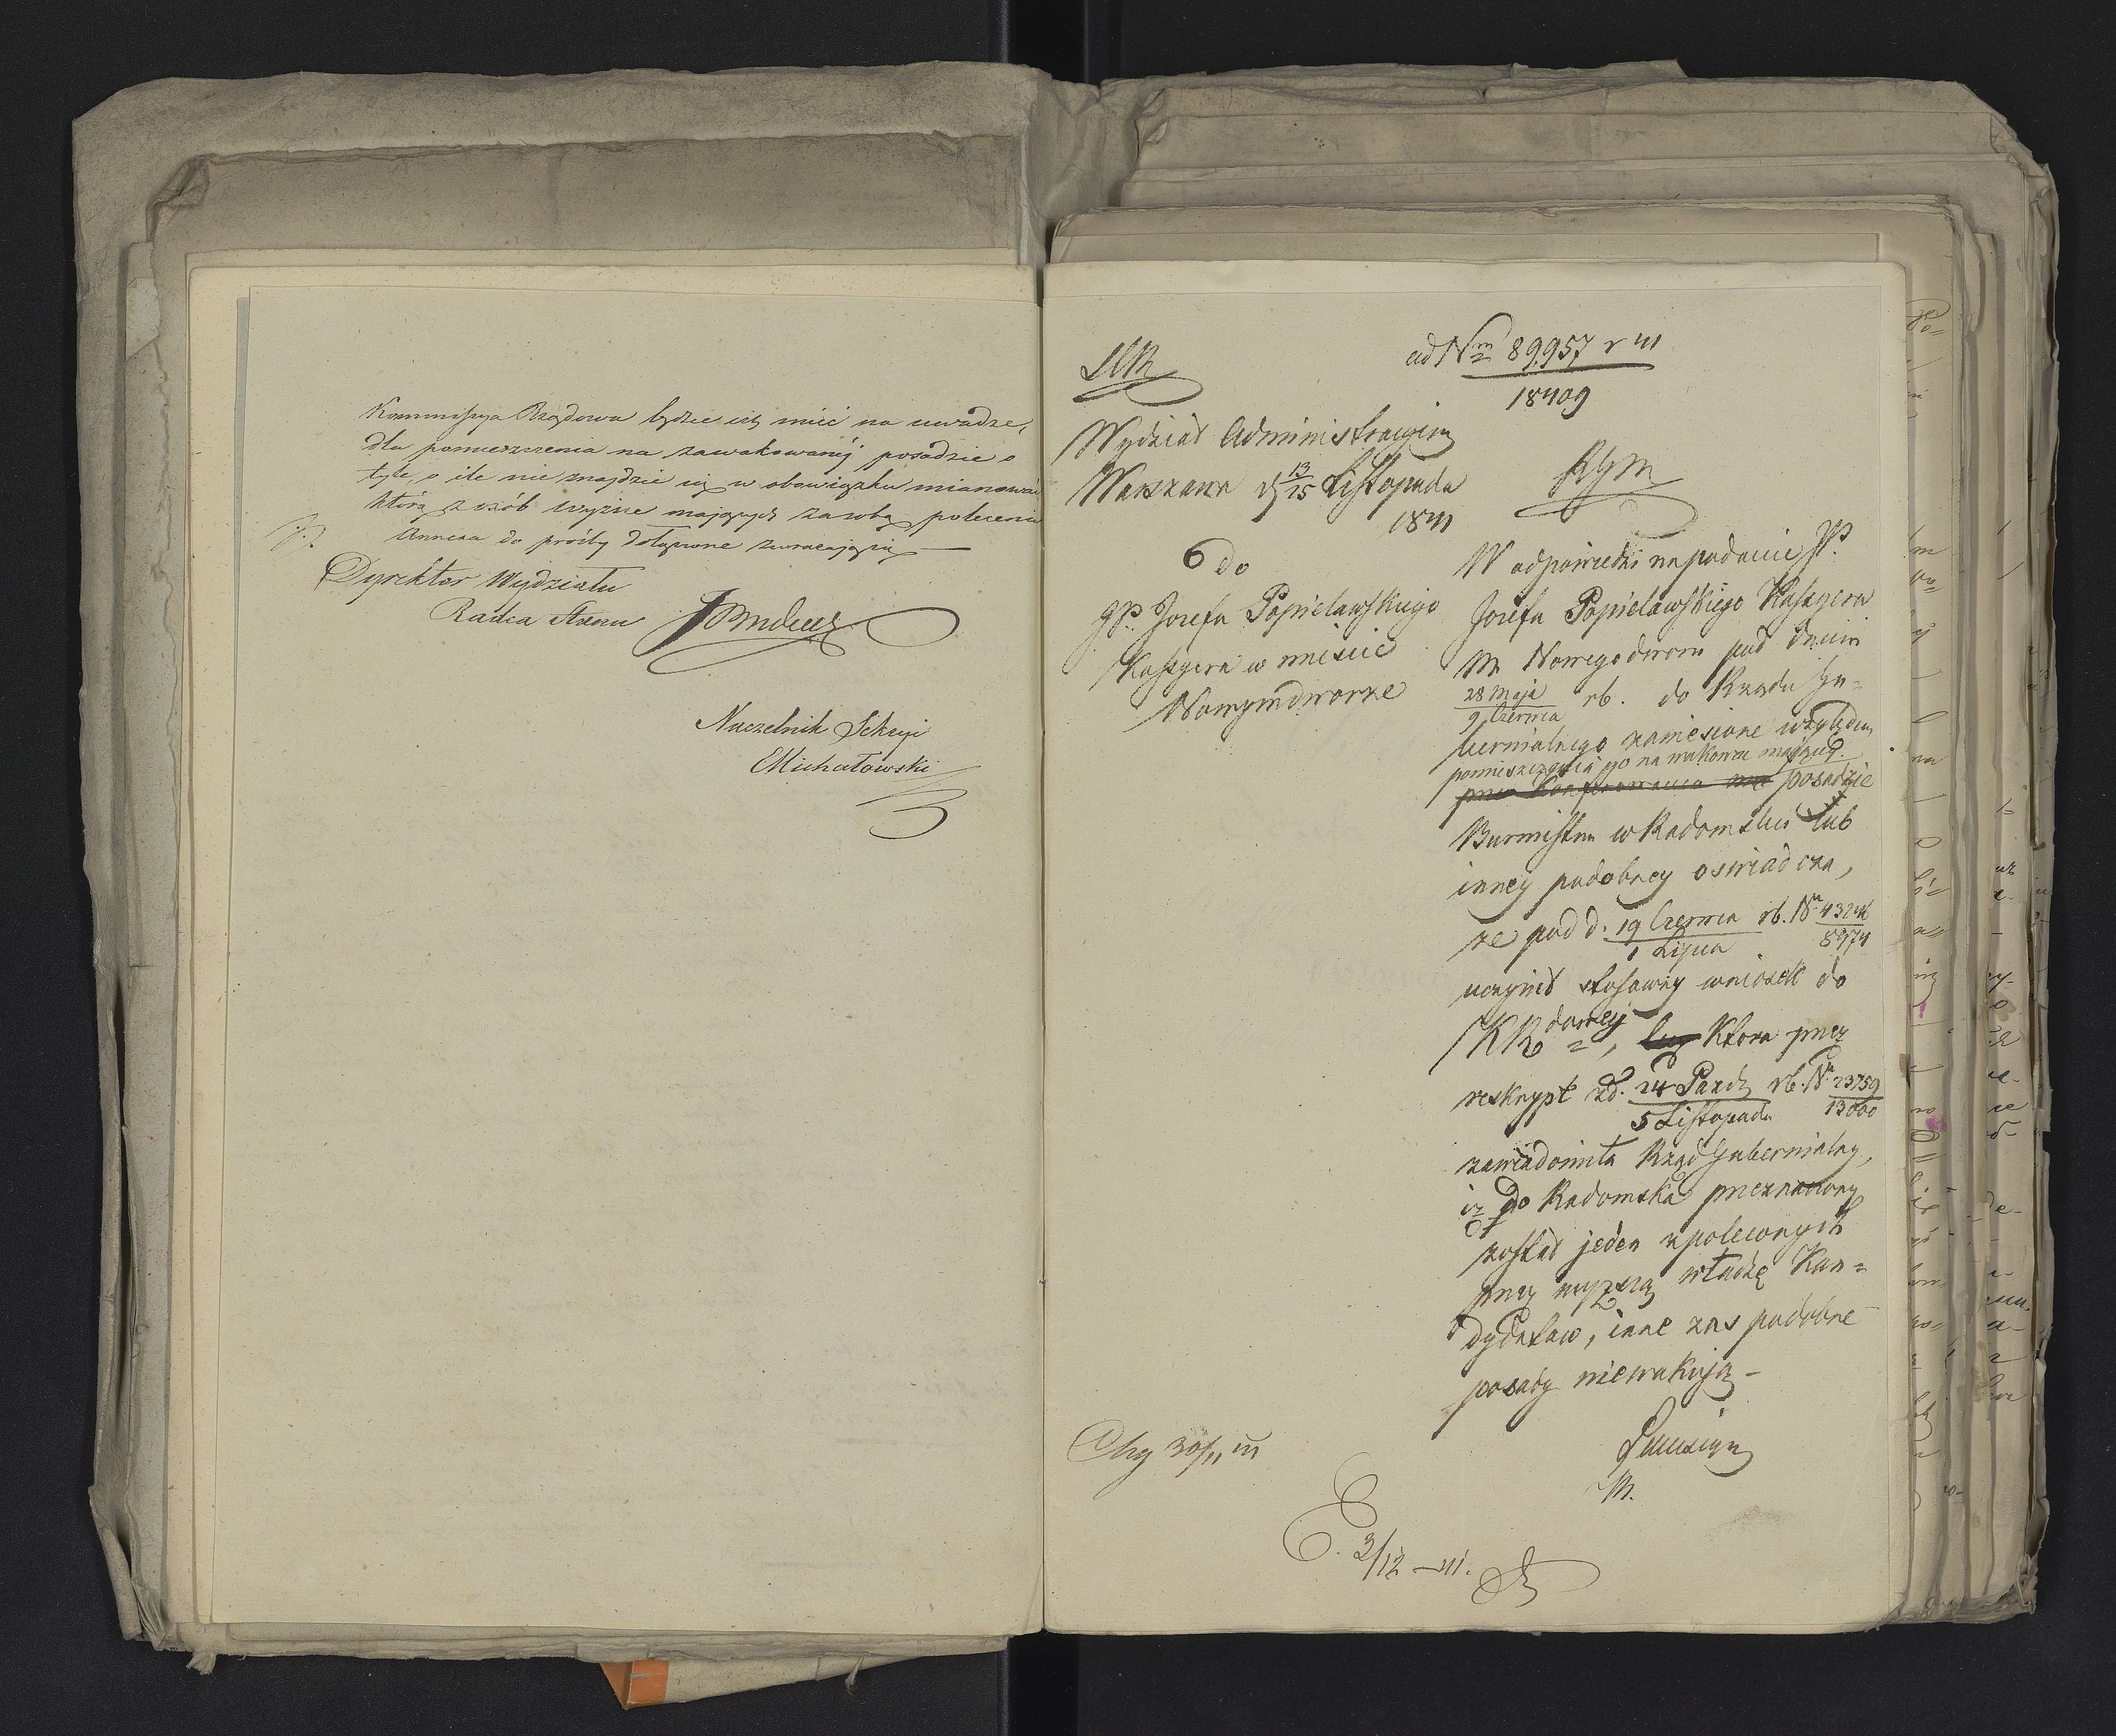 Kommissya Rządowa będzie ich mieć na uwadze,
dla pomieszczenia na zawakowanéj posadzie o
tyle, o ile nie znajdzie się w obowiązku mianować
którą z osób wyższe mających za sobą polecenia
Annexa do prośby dołączone zwracają się —
Dyrektor Wydziału
Radca Stanu
Naczelnik Sekcyi
Michałowski
ad Nm 89,957 r 41
18409
Wydział Administracyiny
Warszawa d 13/25 Listopada
1841
6 do
JP. Jozefa Popielawskiego
Kassyera w mieście
Nowymdworze
W odpowiedzi na podanie JP.
Jozefa Popielawskiego Kassyera
M. Nowegodworu pod dniem
28 Maja
9 Czerwca rb. do Rządu Gu=
bernialnego zaniesione względem
pomieszczenia go na wakować mającej
posadzie
Burmistrza w Radomsku lub
inney podobney oswiadcza,
ze pod d. 19 Czerwca rb. Nr 43246
1 Lipca 8974
uczynił stosowny wniosek do
KRdowey, Ktora przez
reskrypt z d. 24 Pazdz rb. Nr 23759
5 Listopada 13000
zawiadomiła Rząd Gubernialny,
iz do Radomska przeznaczony
został jeden z poleconych
przez wyzszą władzę Kan=
dydatow, inne zas podobne
posady niewakują —
M.
3/12 — 41.